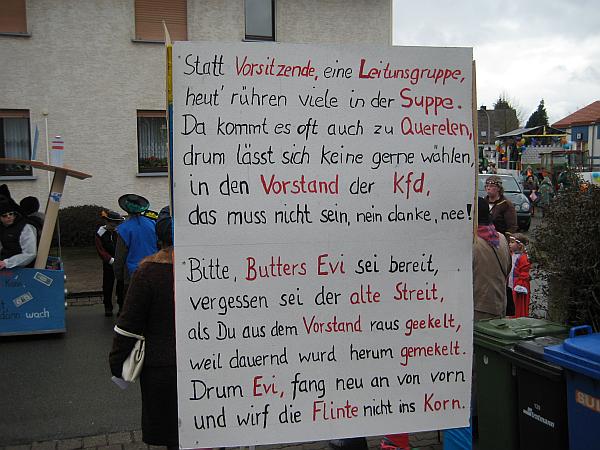 Statt Vorsitzende, eine Leitunsgruppe,
heut' rühren viele in der Suppe.
Da kommt es oft auch zu Querelen,
drum lässt sich keine gerne wählen,
in den Vorstand der Kfd,
das muss nicht sein, nein danke, nee!
Bitte, Butters Evi sei bereit,
vergessen sei der alte Streit,
als Du aus dem Vorstand raus geekelt,
weil dauernd wurd herum gemekelt.
Drum Evi, fang neu an von vorn
und wirf die Flinte nicht ins Korn.
wach